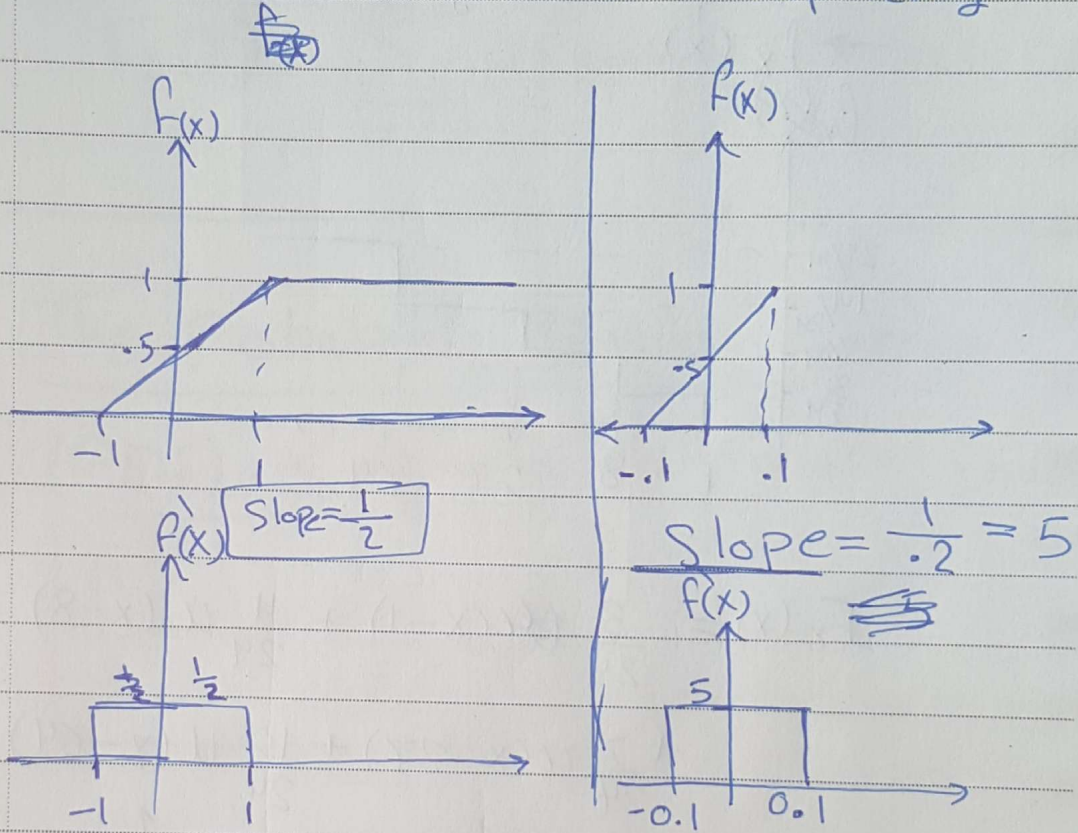 f(x)
1
.5
-1
1
Slope = 1/2
f`(x)
1/2
-1
1
f(x)
1
.5
-.1
.1
Slope = 1/.2 = 5
f`(x)
5
-0.1
0.1